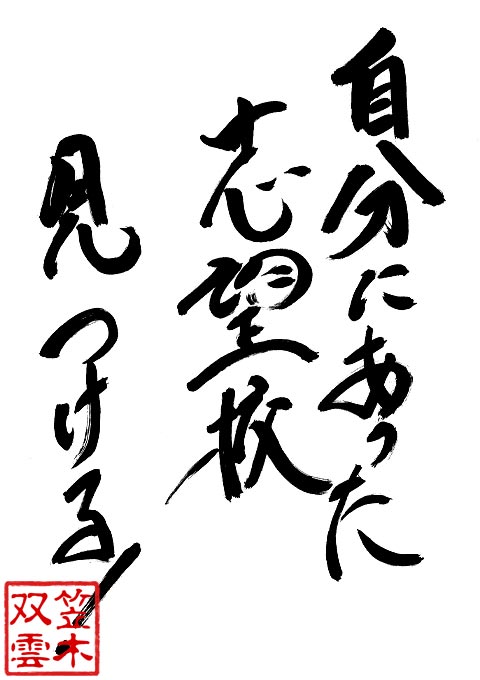 自分にあった
志望校
見つける！
笠木
双雲